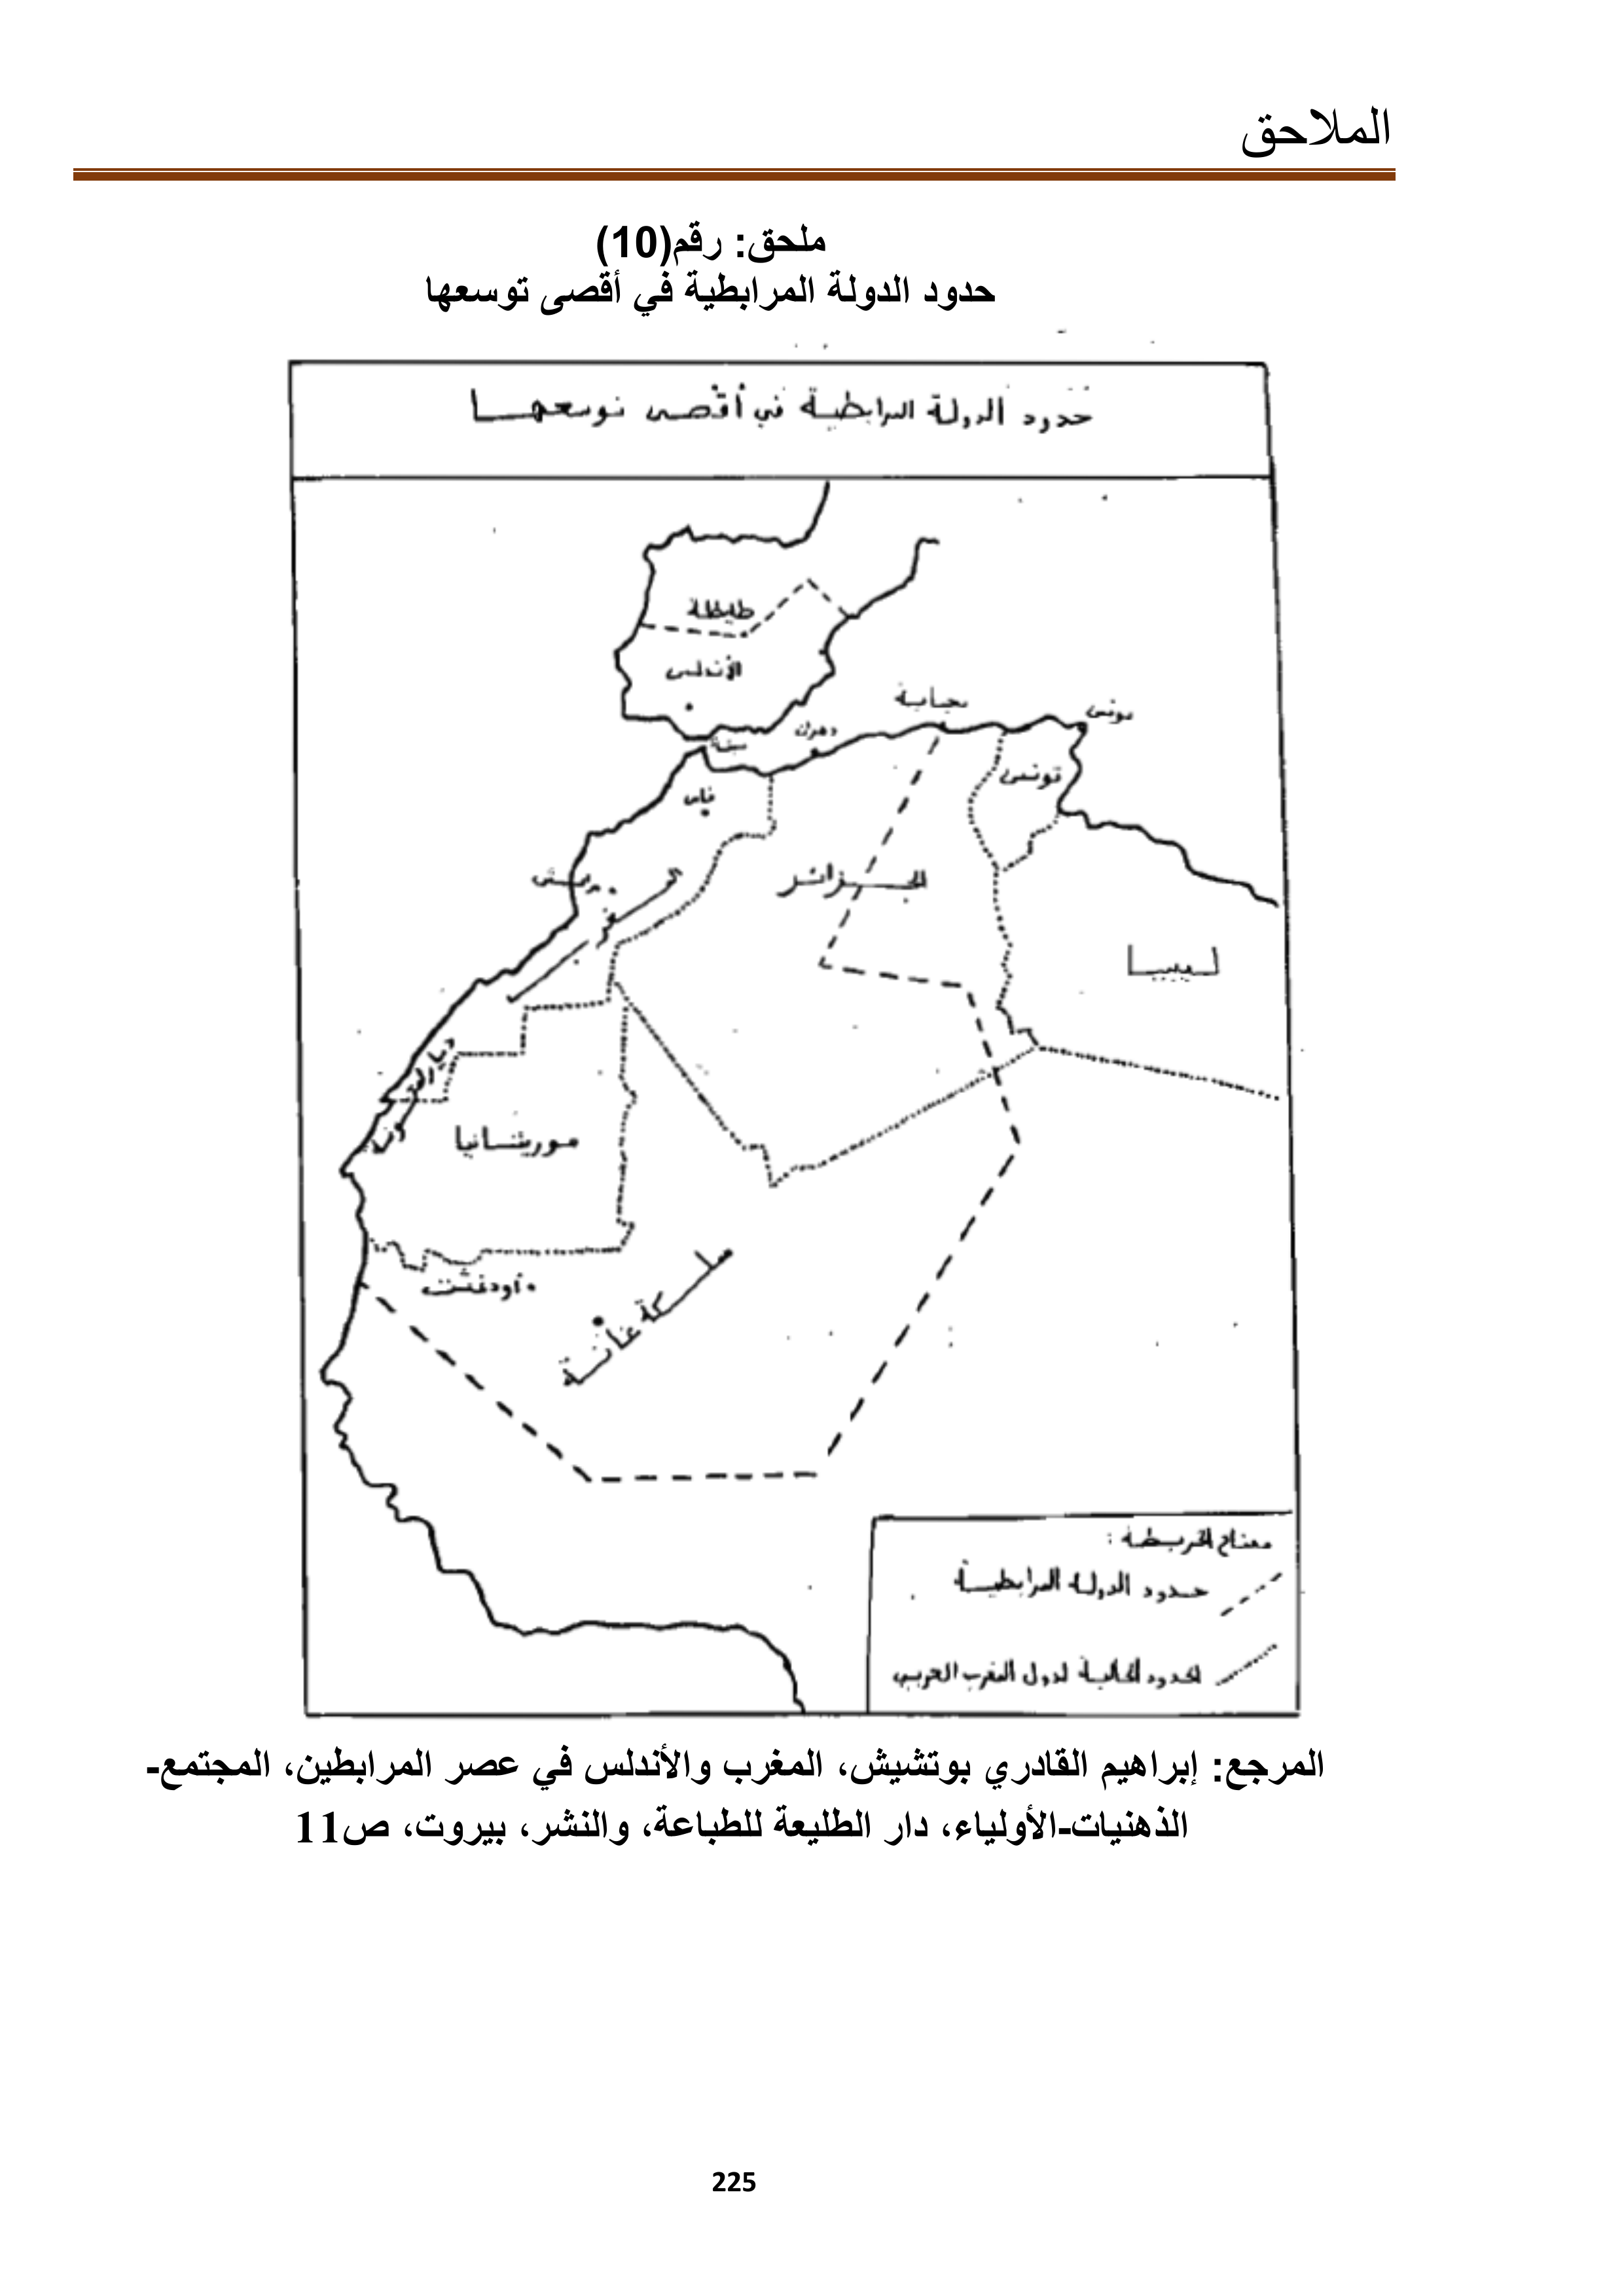 الملاحق
ملحق: رقم(10)
حدود الدولة المرابطية في أقصى توسعها
حدود الدولة المرابطية في أقصى توسعها
طليطلة
الأندلس
بجاية
تونس
وهران
سبتة
تونس
فاس
الجزائر
مراكش
المغرب
ليبيا
موريتانيا
أودغشت
مملكة غانة
مفتاح الخريطة :
حدود الدولة المرابطية
الحدود الحالية لدول المغرب العربي
المرجع: إبراهيم القادري بوتشيش، المغرب والأندلس في عصر المرابطين، المجتمع-
الذهنيات-الأولياء، دار الطليعة للطباعة، والنشر، بيروت، ص11
225